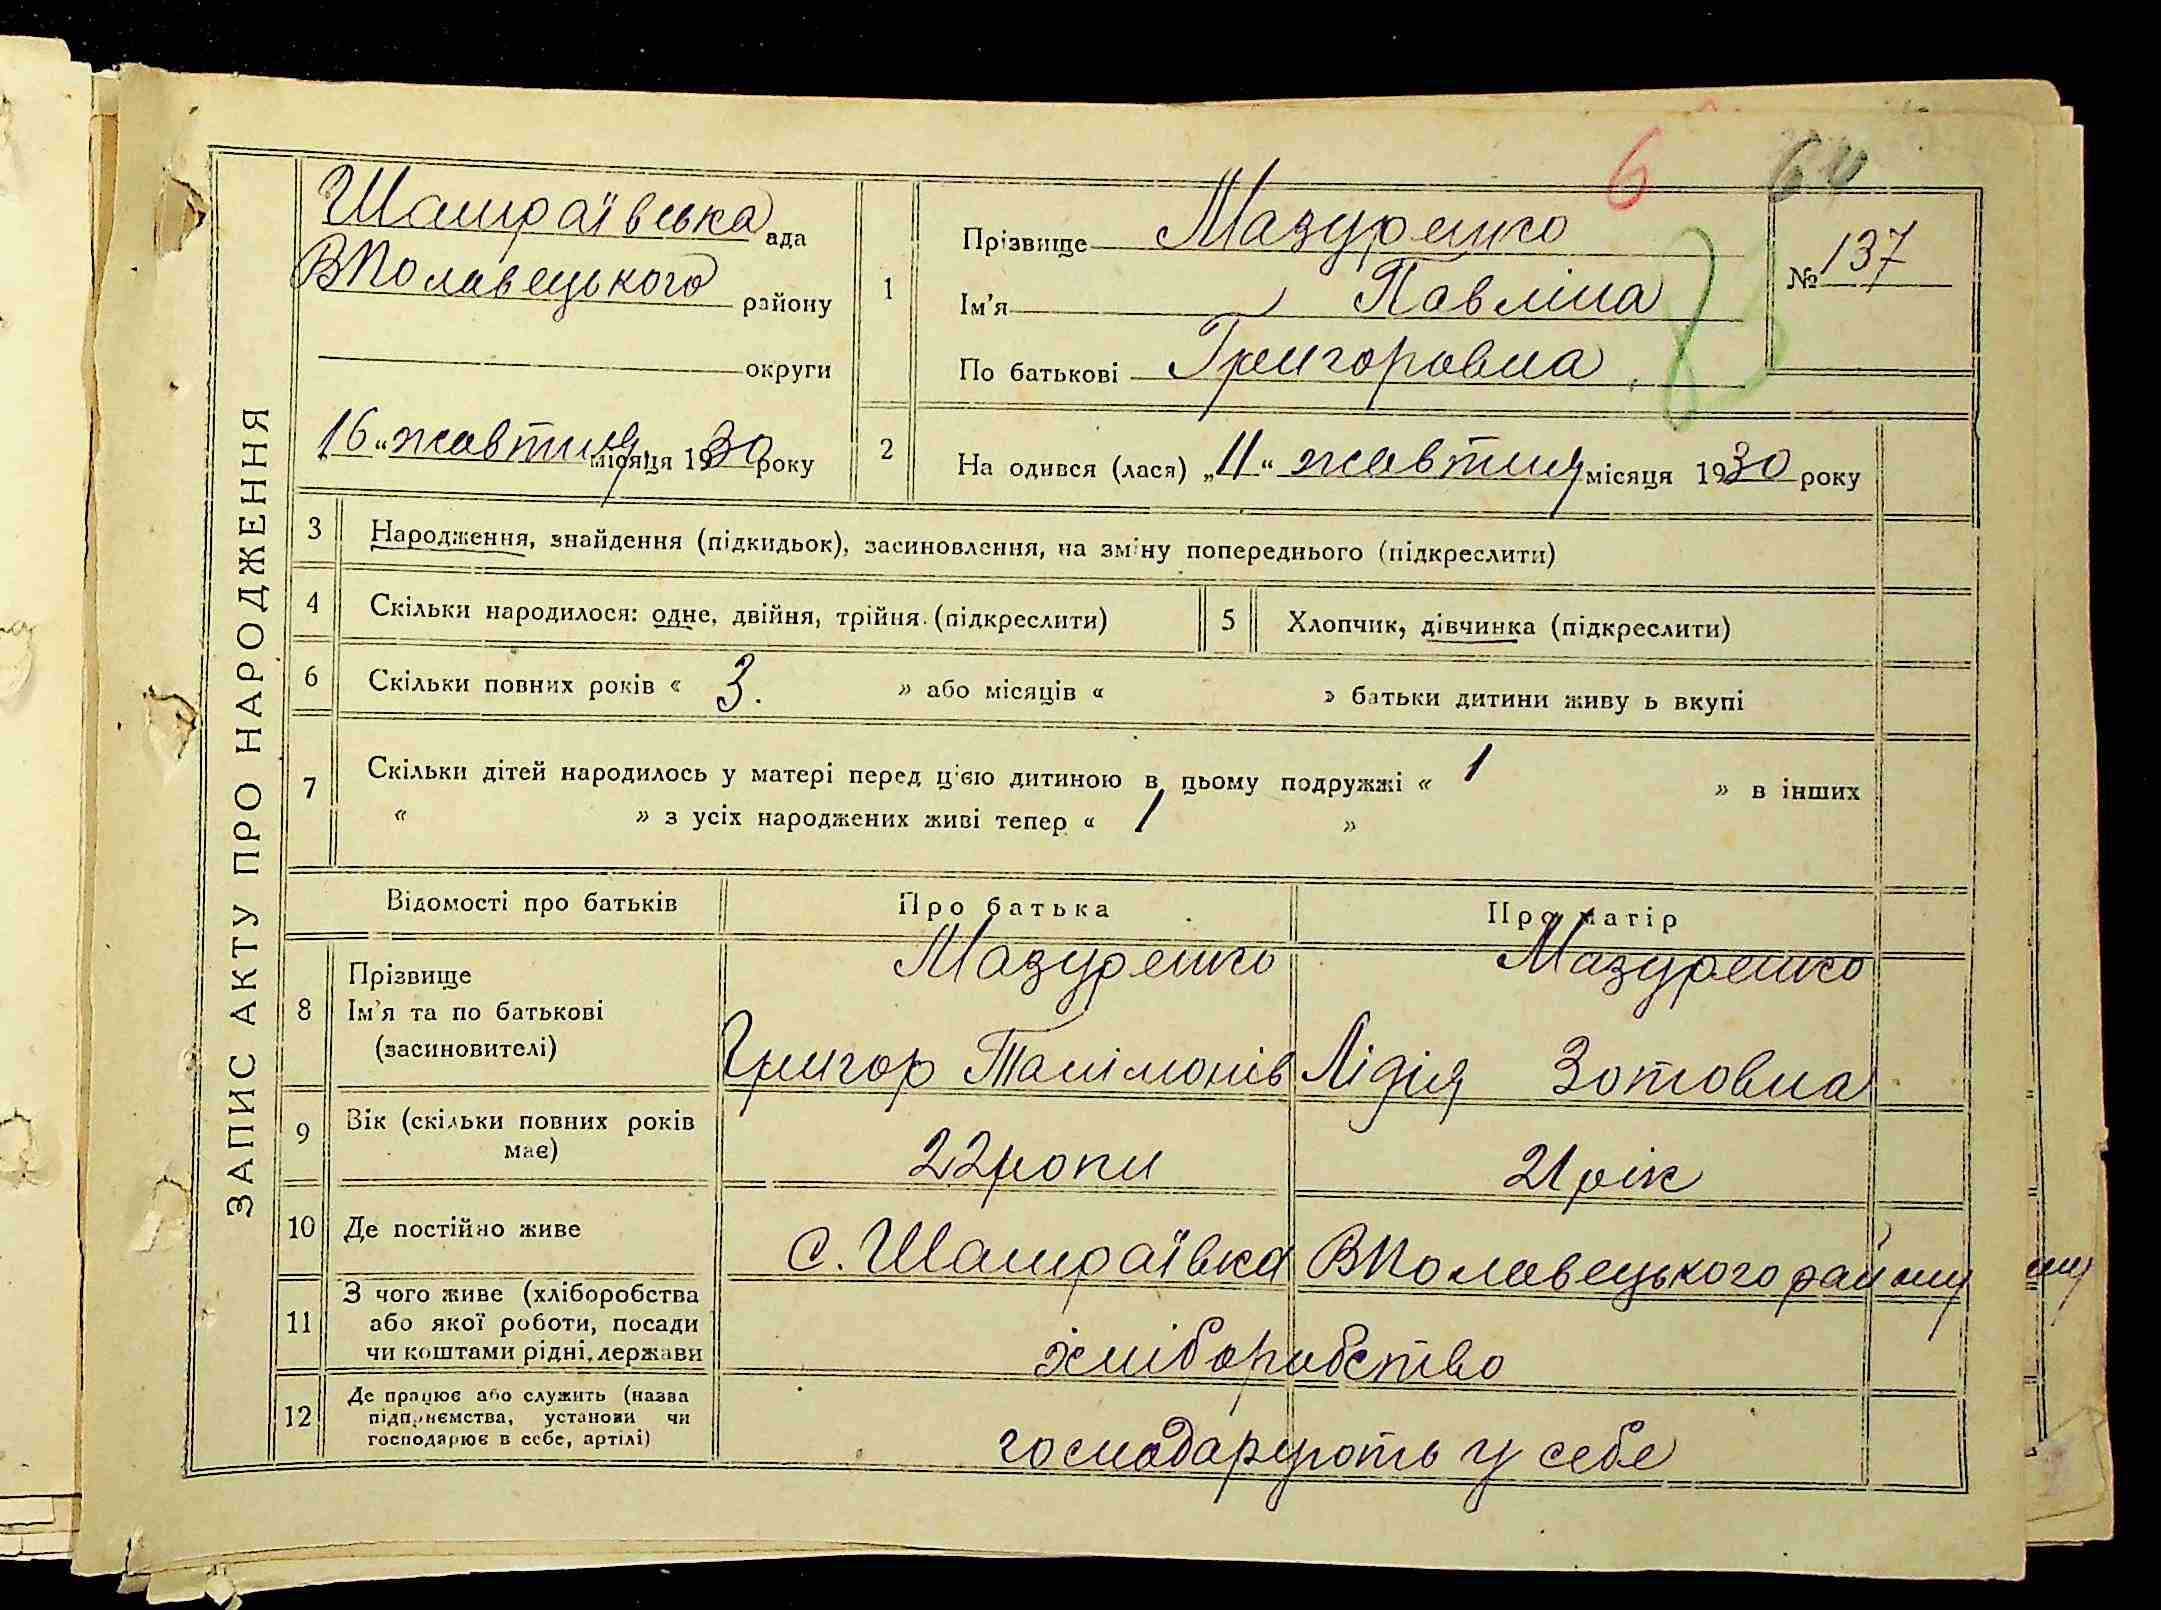 ЗАПИС АКТУ ПРО НАРОДЖЕННЯ
6 64
Шамраївська ада
ВПоловецького району
округи
16 "жовтня місяця 1930 року
1
Прізвище Мазуренко
Ім'я Павліна
По батькові Григоровна
№ 137
2 На одився (лася) „11“ жовтня місяця 1930 року
3 Народження, знайдення (підкидьок), засиновлення, на зміну попереднього (підкреслити)
4 Скільки народилося: одне, двійня, трійня (підкреслити)
5 Хлопчик, дівчинка (підкреслити)
6 Скільки повних років « 3. » або місяців « » батьки дитини живу ь вкупі
7 Скільки дітей народилось у матері перед цією дитиною в цьому подружжі « 1 » в інших
« » з усіх народжених живі тепер « 1 »
Відомості про батьків Про батька Про матір
8 Прізвище Мазуренко Мазуренко
Ім'я та по батькові
(засиновителі) Григор Лідія Зотовна
9 Вік (скільки повних років
має) 22 роки 21 рік
10 Де постійно живе с. Шамраївка ВПоловецького району
11 З чого живе (хліборобства
або якої роботи, посади
чи коштами рідні, держави хліборобство
12 Де працює або служить (назва
підприємства, установи чи
господарює в себе, артілі) господарують у себе